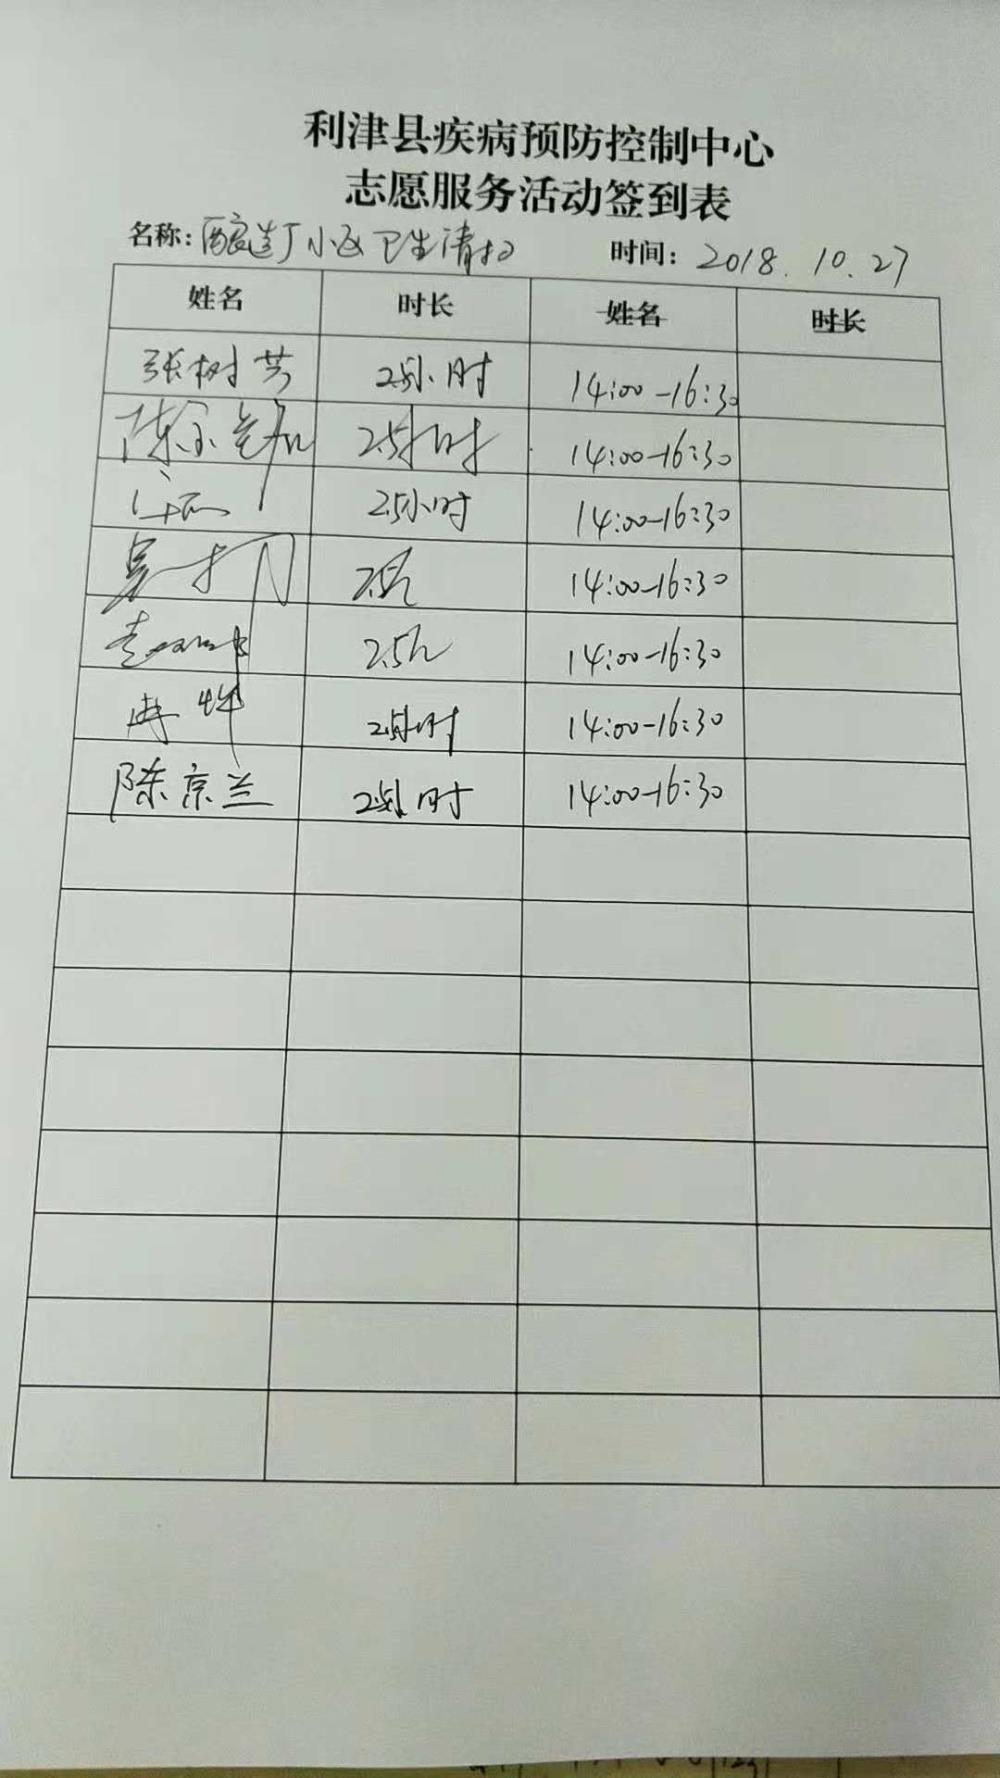 利津县疾病预防控制中心
志愿服务活动签到表
名称：酿造厂小区卫生清扫 时间：2018.10.27
姓名 时长 姓名 时长
张树芸 2.5小时 14:00-16:30
2.5小时 14:00-16:30
2.5小时 14:00-16:30
2.5h 14:00-16:30
2.5h 14:00-16:30
2.5小时 14:00-16:30
陈京兰 2.5小时 14:00-16:30